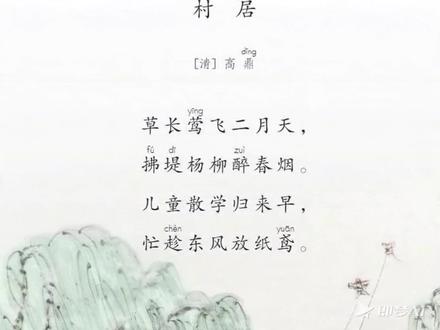 村居
dǐng
[清] 高鼎
yīng
草长莺飞二月天，
fú dī zuì
拂堤杨柳醉春烟。
儿童散学归来早，
chèn yuān
忙趁东风放纸鸢。
即梦AI